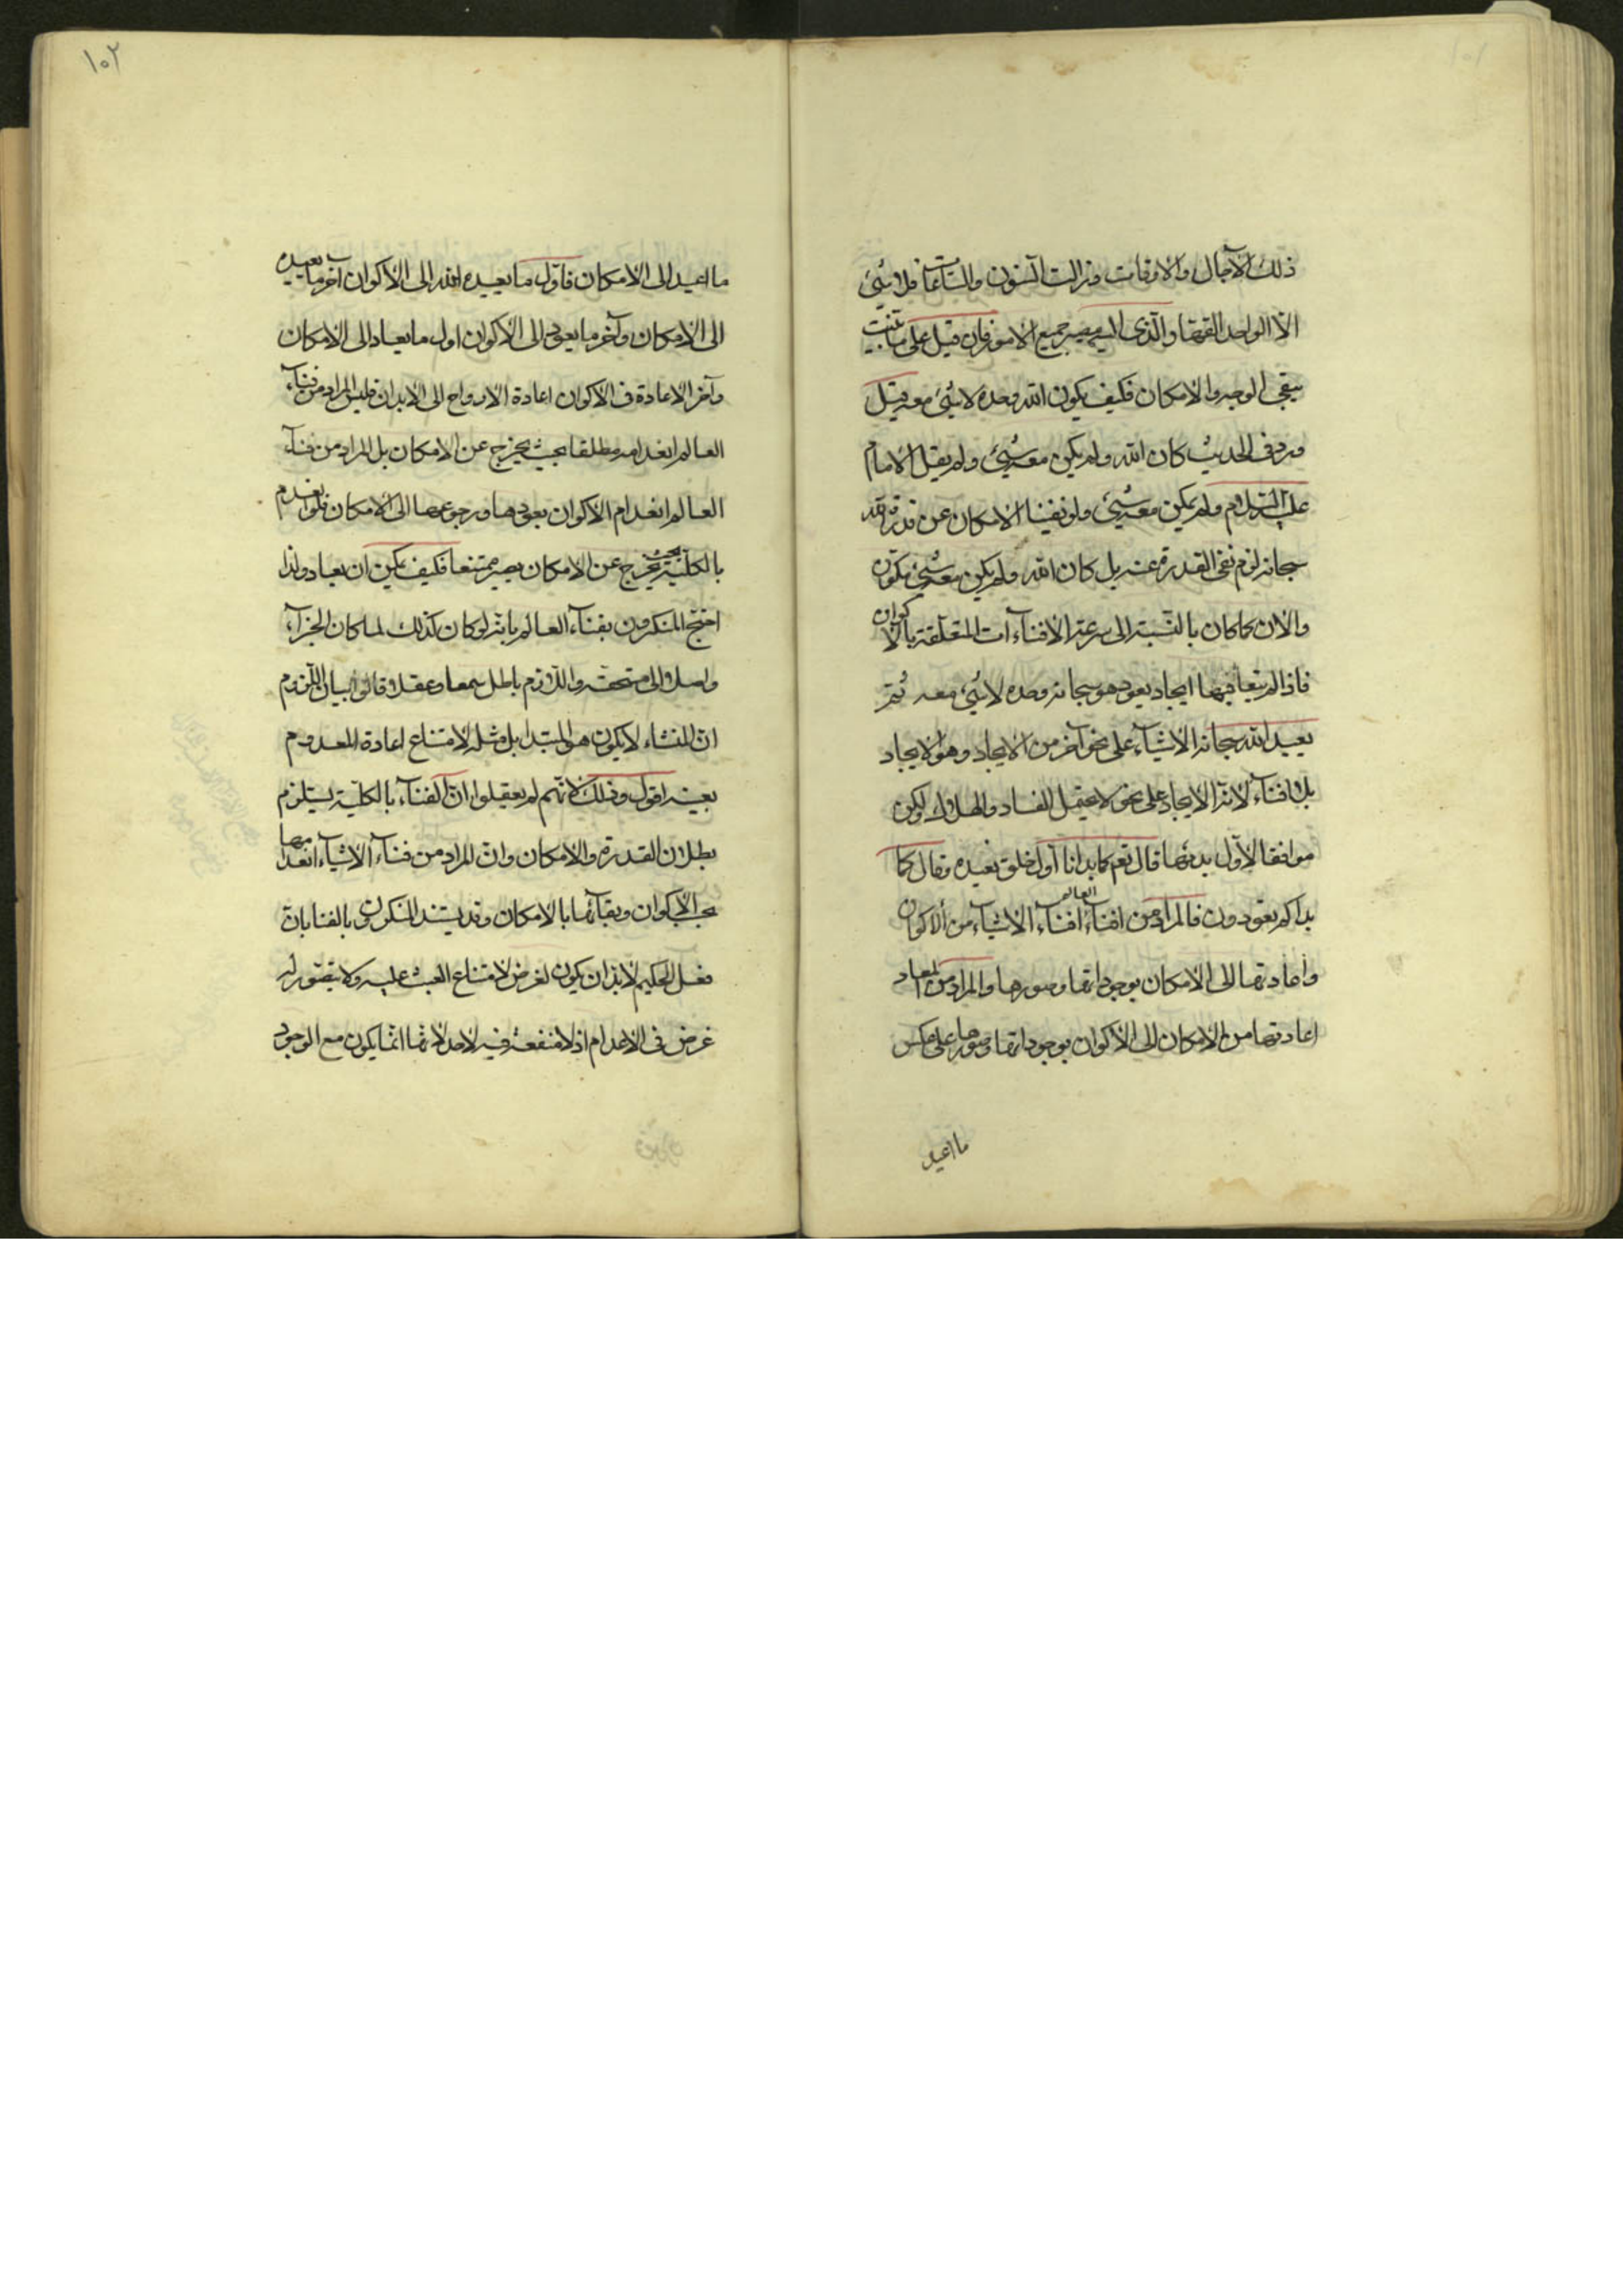 ذلك الآجال والاوقات وزالت السنون والساعات فلا شئ
الّا الواحد القهّار الّذى اليه مصير جميع الامور فان قيل على ما تثبت
يبقى الوجه والامكان فكيف يكون الله وحده لا شئ معه قيل
ورد فى الحديث كان الله ولم يكن معه شئ ولم يقل الامام
عليه السّلام ولم يمكن معه شئ ولو نفينا الامكان عن قدرته
سبحانه لزم نفى القدرة عنه بل كان الله ولم يكن معه شئ مكوّن
والان كما كان بالنّسبة الى سرعة الافناءات المتعلّقة بالاكوان
فاذا لم يبق فيها ايجاد يعود هو سبحانه وحده لا شئ معه ثم
يعيد الله سبحانه الاشياء على نحو آخر من الايجاد وهو الايجاد
بلا فناء لانّه الايجاد على نحو لا يحتمل الفساد والهلاك وليكن
موافقا لاوّل بدئها قال تعم كما بدانا أول خلق نعيده وقال كما
بداكم تعودون فالمراد من افناء العالم افناء الاشياء من الاكوان
واعادتها الى الامكان بوجوداتها وصورها والمراد من المعاد
اعادتها من الامكان الى الاكوان بوجوداتها وصورها على عكس
ما اعيد
١٠٢
ما اعيد الى الامكان فاوّل ما يعيده الله الى الاكوان آخر ما يعيده
الى الامكان وآخر ما يعود الى الاكوان اول ما يعاد الى الامكان
وآخر الاعادة فى الاكوان اعادة الارواح الى الابدان فليس المراد من فناء
العالم انعدامه مطلقا بحيث يخرج عن الامكان بل المراد من فناء
العالم انعدام الاكوان بعودها ورجوعها الى الامكان فلو انعدم
بالكليّة بحيث يخرج عن الامكان يصير ممتنعا فكيف يمكن ان يعاد ولذا
احتج المنكرون بفناء العالم بانّه لو كان كذلك لما كان الجزاء
واصلا الى مستحقه واللازم باطل سمعا وعقلا وقالوا بيان اللّزوم
انّ المنشاء لا يكون هو المبتدا بل مثله لامتناع اعادة المعدوم
بعينه اقول وذلك لانّهم لم يعقلوا انّ الفناء بالكليّة يستلزم
بطلان القدرة والامكان وانّ المراد من فناء الاشياء انعدامها
بحسب الاكوان وبقائها بالامكان وقد يستند المنكرون بالفنا بانّ
فعل الحكيم لا بدّ ان يكون لغرض لامتناع العبث عليه ولا يتصوّر له
غرض فى الاعدام اذ لا منفعة فيه لاحد لانّها انّما يكون مع الوجود